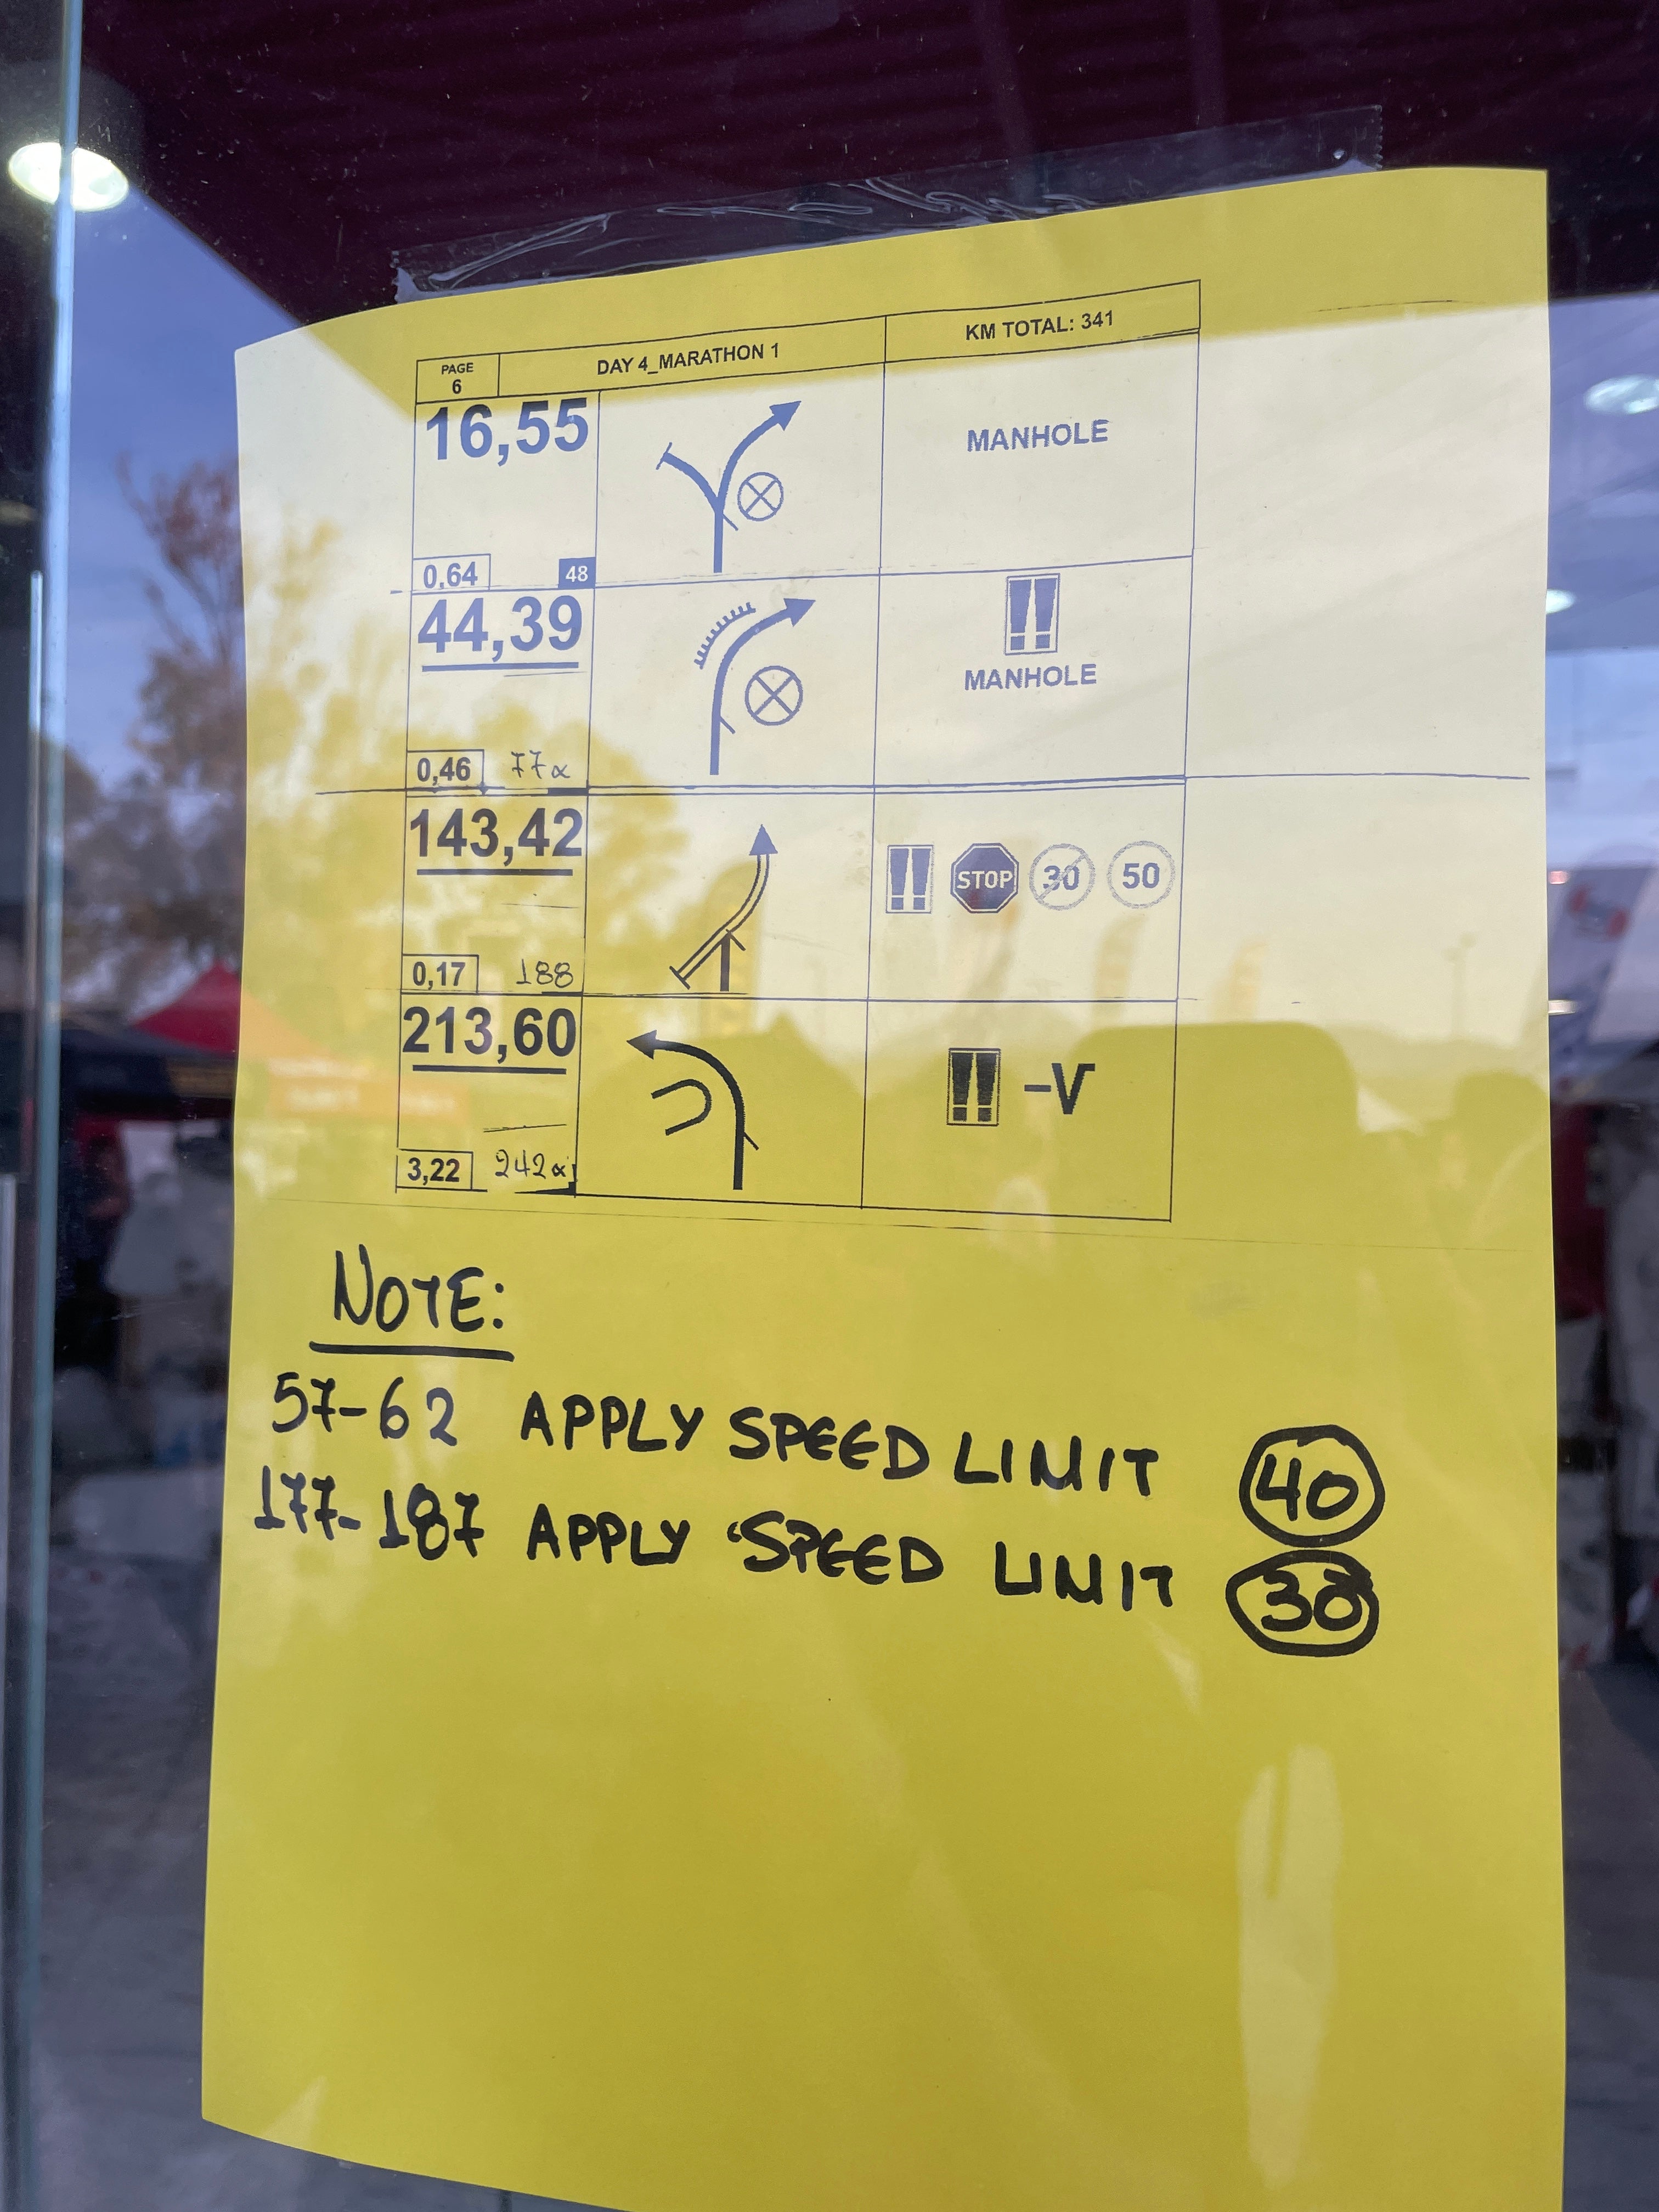 PAGE 6 DAY 4_MARATHON 1 KM TOTAL: 341
16,55
MANHOLE
0,64 48
44,39
MANHOLE
0,46 77α
143,42
STOP 30 50
0,17 188
213,60
!! -V
3,22 242α
NOTE:
57-62 APPLY SPEED LIMIT 40
177-187 APPLY SPEED LIMIT 30